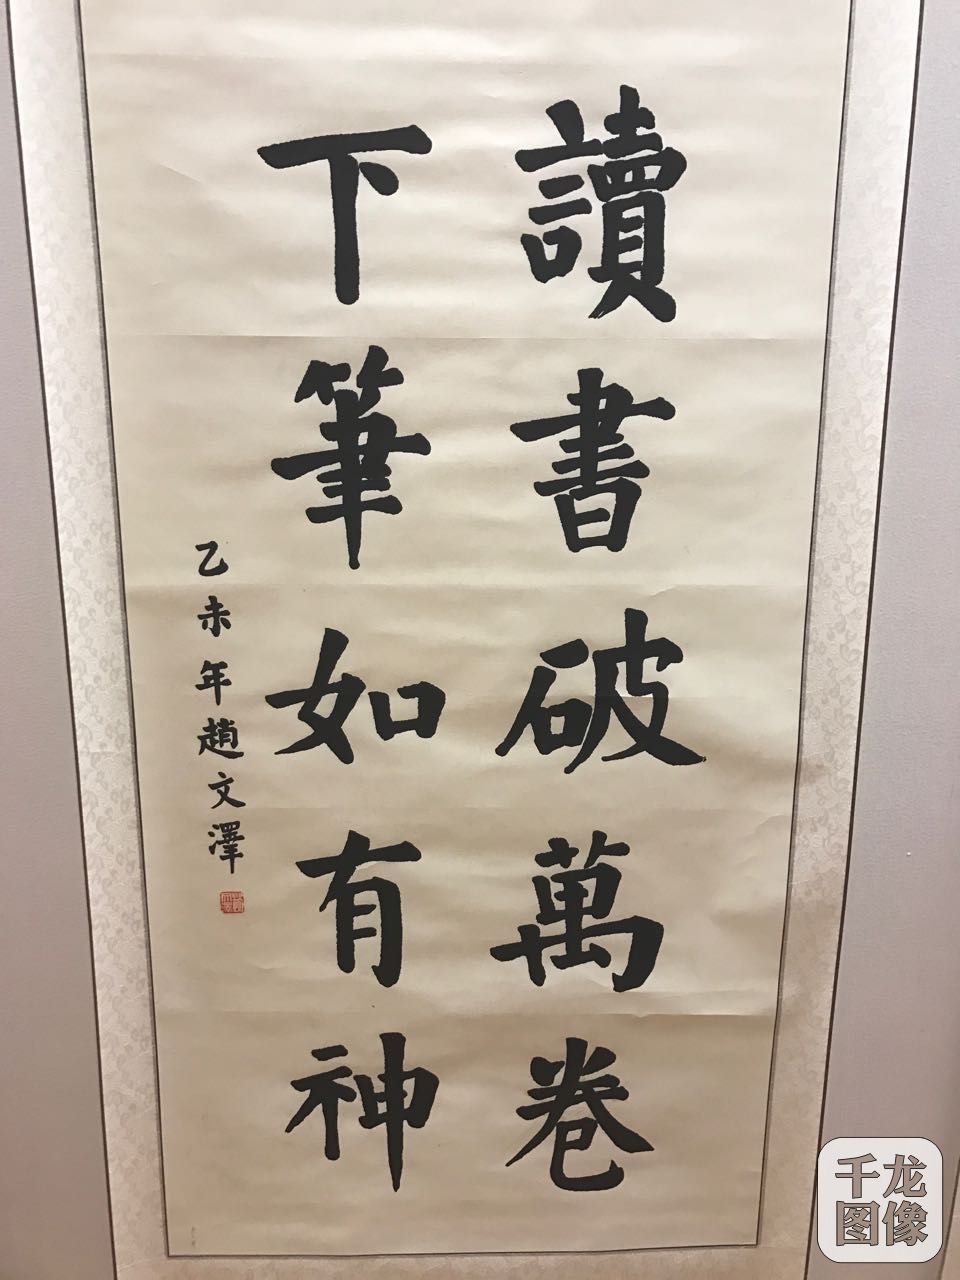 讀書破萬卷
下筆如有神
乙未年趙文澤
千龙
图像